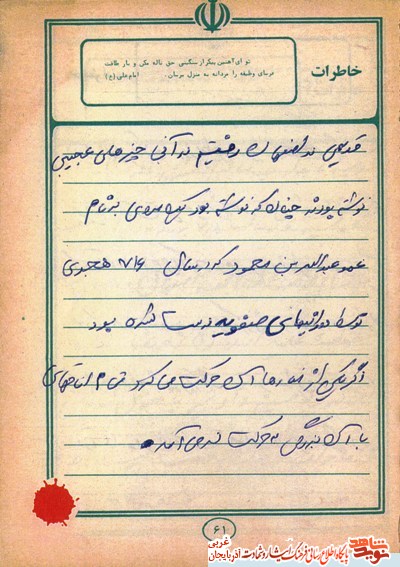 خاطرات
تو ای آهنین پیکر از سنگینی حق ناله مکن و بار طاقت
فرسای وظیفه را مردانه به منزل برسان. امام علی (ع)
قدیمی در اصفهان رفتیم در آنی چیزهای عجیبی
نوشته بودند چنان که نوشته بود یک بنام
عمو عبداله بن محمود که در سال ۷۱۶ هجری
توسط صفویه درست شده بود
اگر یکی از مناره ها آن حرکت می کرد تمام
با آن بزرگی به حرکت در می آمد.
۶۱
نوید شاهد
پایگاه اطلاع رسانی فرهنگ ایثار و شهادت آذربایجان غربی